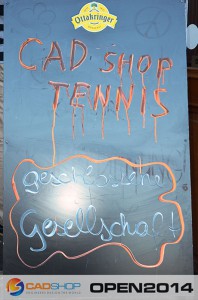 Ottakringer
CAD SHOP
TENNIS
Gesellschaft
CADSHOP OPEN2014